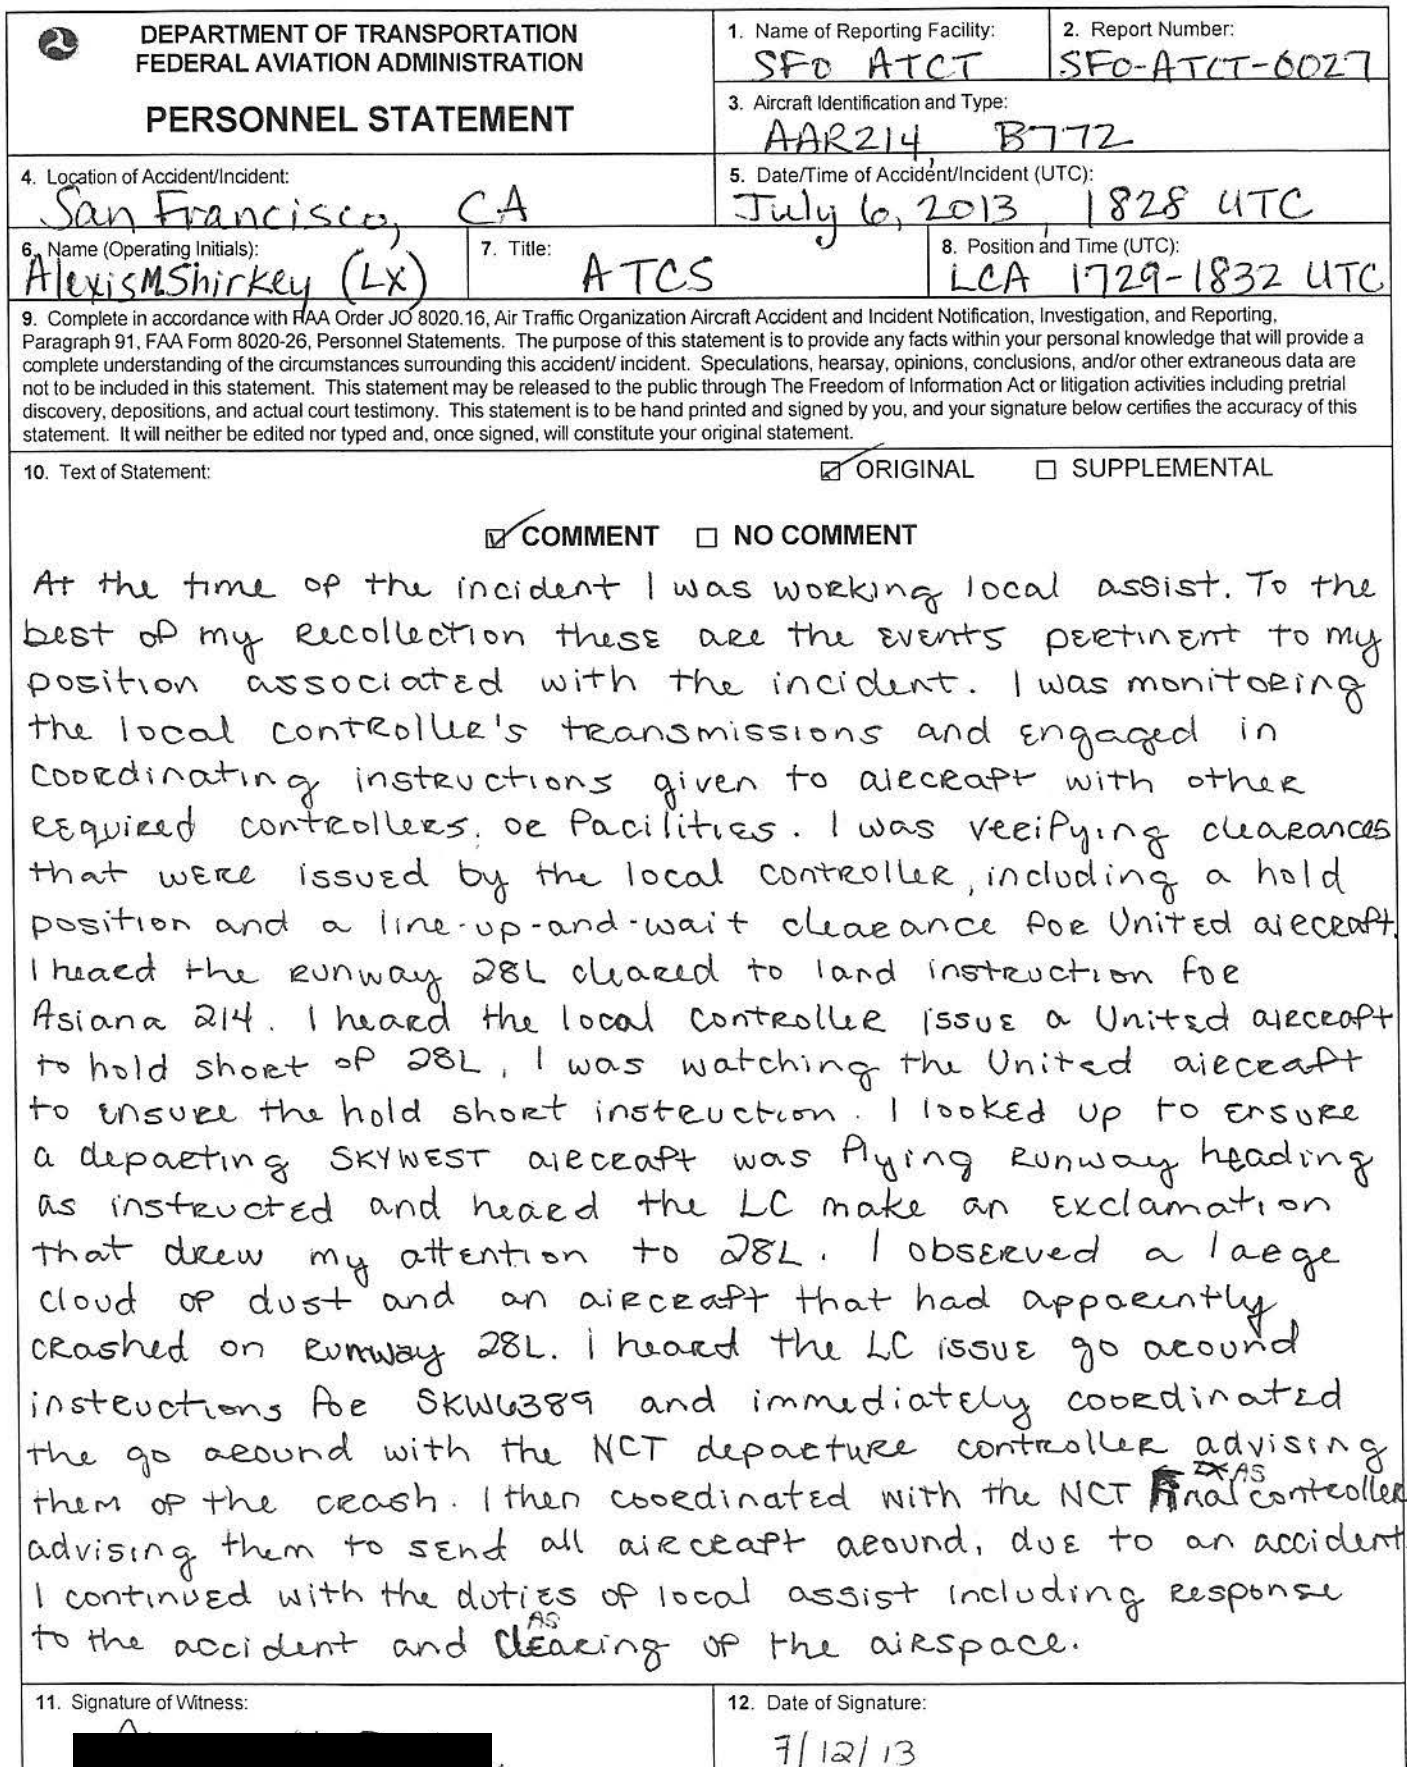 DEPARTMENT OF TRANSPORTATION
FEDERAL AVIATION ADMINISTRATION
PERSONNEL STATEMENT
1. Name of Reporting Facility:
SFO ATCT
2. Report Number:
SFO-ATCT-0027
3. Aircraft Identification and Type:
AAR214, B772
4. Location of Accident/Incident:
San Francisco, CA
5. Date/Time of Accident/Incident (UTC):
July 6, 2013, 1828 UTC
6. Name (Operating Initials):
Alexis M Shirkey (LX)
7. Title:
ATCS
8. Position and Time (UTC):
LCA 1729-1832 UTC
9. Complete in accordance with FAA Order JO 8020.16, Air Traffic Organization Aircraft Accident and Incident Notification, Investigation, and Reporting,
Paragraph 91, FAA Form 8020-26, Personnel Statements. The purpose of this statement is to provide any facts within your personal knowledge that will provide a
complete understanding of the circumstances surrounding this accident/ incident. Speculations, hearsay, opinions, conclusions, and/or other extraneous data are
not to be included in this statement. This statement may be released to the public through The Freedom of Information Act or litigation activities including pretrial
discovery, depositions, and actual court testimony. This statement is to be hand printed and signed by you, and your signature below certifies the accuracy of this
statement. It will neither be edited nor typed and, once signed, will constitute your original statement.
10. Text of Statement:
ORIGINAL SUPPLEMENTAL
COMMENT NO COMMENT
At the time of the incident I was working local assist. To the
best of my recollection these are the events pertinent to my
position associated with the incident. I was monitoring
the local controller's transmissions and engaged in
coordinating instructions given to aircraft with other
required controllers, or facilities. I was verifying clearances
that were issued by the local controller, including a hold
position and a line-up-and-wait clearance for United aircraft.
I heard the runway 28L cleared to land instruction for
Asiana 214. I heard the local controller issue a United aircraft
to hold short of 28L, I was watching the United aircraft
to ensure the hold short instruction. I looked up to ensure
a departing SKYWEST aircraft was flying runway heading
as instructed and heard the LC make an exclamation
that drew my attention to 28L. I observed a large
cloud of dust and an aircraft that had apparently
crashed on runway 28L. I heard the LC issue go around
instructions for SKW6389 and immediately coordinated
the go around with the NCT departure controller advising
them of the crash. I then coordinated with the NCT final AS controller
advising them to send all aircraft around, due to an accident
I continued with the duties of local assist including response
to the accident and clearing AS of the airspace.
11. Signature of Witness:
12. Date of Signature:
7/12/13